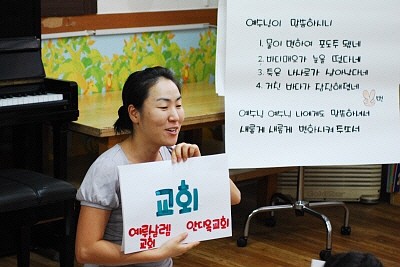 예수님이 말씀하시니
1. 물이 변하여 포도주 됐네
2. 바디매오가 눈을 떴다네
3. 죽은 나사로가 살아났다네
4. 거친 바다가 잔잔해졌네
예수님 예수님 나에게도 말씀하셔서
새롭게 새롭게 변화시켜 주소서
교회
예루살렘 안디옥교회
교회